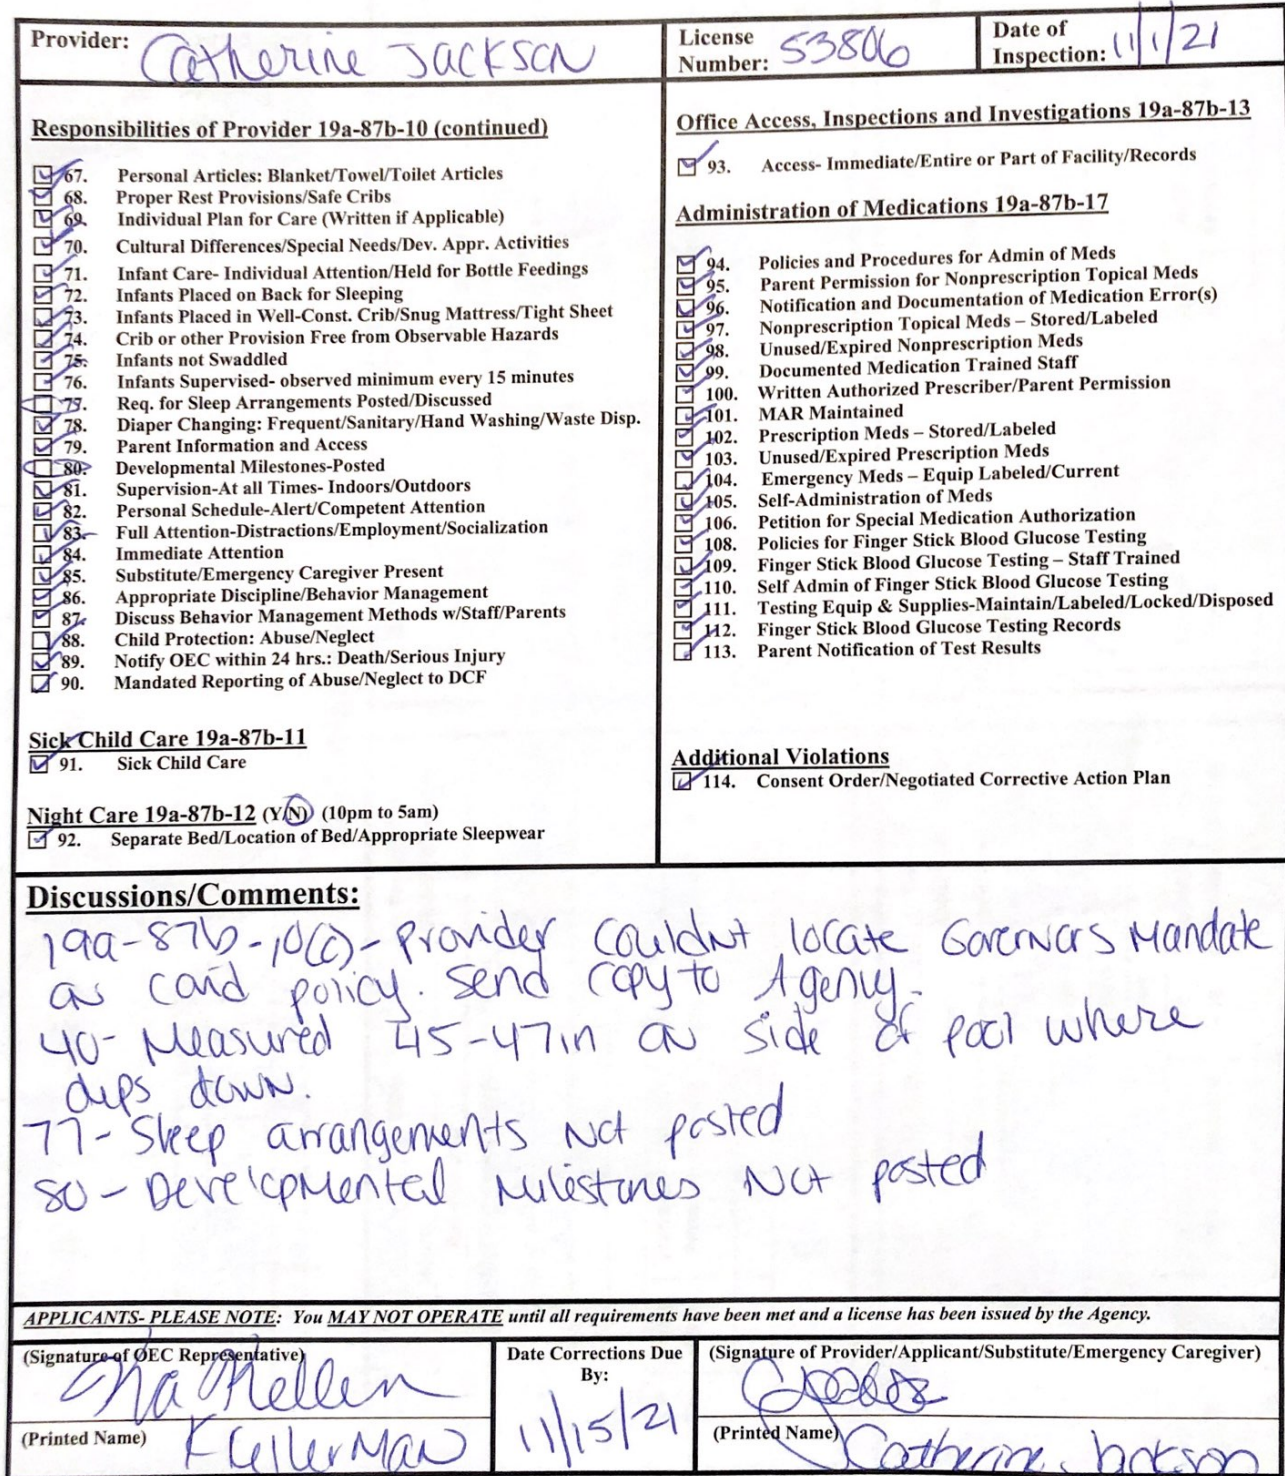 Provider: Catherine Jackson
License Number: 53806
Date of Inspection: 11/1/21
Responsibilities of Provider 19a-87b-10 (continued)
67. Personal Articles: Blanket/Towel/Toilet Articles
68. Proper Rest Provisions/Safe Cribs
69. Individual Plan for Care (Written if Applicable)
70. Cultural Differences/Special Needs/Dev. Appr. Activities
71. Infant Care- Individual Attention/Held for Bottle Feedings
72. Infants Placed on Back for Sleeping
73. Infants Placed in Well-Const. Crib/Snug Mattress/Tight Sheet
74. Crib or other Provision Free from Observable Hazards
75. Infants not Swaddled
76. Infants Supervised- observed minimum every 15 minutes
77. Req. for Sleep Arrangements Posted/Discussed
78. Diaper Changing: Frequent/Sanitary/Hand Washing/Waste Disp.
79. Parent Information and Access
80. Developmental Milestones-Posted
81. Supervision-At all Times- Indoors/Outdoors
82. Personal Schedule-Alert/Competent Attention
83. Full Attention-Distractions/Employment/Socialization
84. Immediate Attention
85. Substitute/Emergency Caregiver Present
86. Appropriate Discipline/Behavior Management
87. Discuss Behavior Management Methods w/Staff/Parents
88. Child Protection: Abuse/Neglect
89. Notify OEC within 24 hrs.: Death/Serious Injury
90. Mandated Reporting of Abuse/Neglect to DCF
Sick Child Care 19a-87b-11
91. Sick Child Care
Night Care 19a-87b-12 (Y/N) (10pm to 5am)
92. Separate Bed/Location of Bed/Appropriate Sleepwear
Office Access, Inspections and Investigations 19a-87b-13
93. Access- Immediate/Entire or Part of Facility/Records
Administration of Medications 19a-87b-17
94. Policies and Procedures for Admin of Meds
95. Parent Permission for Nonprescription Topical Meds
96. Notification and Documentation of Medication Error(s)
97. Nonprescription Topical Meds – Stored/Labeled
98. Unused/Expired Nonprescription Meds
99. Documented Medication Trained Staff
100. Written Authorized Prescriber/Parent Permission
101. MAR Maintained
102. Prescription Meds – Stored/Labeled
103. Unused/Expired Prescription Meds
104. Emergency Meds – Equip Labeled/Current
105. Self-Administration of Meds
106. Petition for Special Medication Authorization
108. Policies for Finger Stick Blood Glucose Testing
109. Finger Stick Blood Glucose Testing – Staff Trained
110. Self Admin of Finger Stick Blood Glucose Testing
111. Testing Equip & Supplies-Maintain/Labeled/Locked/Disposed
112. Finger Stick Blood Glucose Testing Records
113. Parent Notification of Test Results
Additional Violations
114. Consent Order/Negotiated Corrective Action Plan
Discussions/Comments:
19a-87b-10(c)- Provider couldnt locate Governors Mandate
on covid policy. Send copy to Agency.
40- Measured 45-47in on side of pool where
dips down.
77- Sleep arrangements Not posted
80- Developmental Milestones Not posted
APPLICANTS- PLEASE NOTE: You MAY NOT OPERATE until all requirements have been met and a license has been issued by the Agency.
(Signature of OEC Representative)
(Printed Name) K Kellerman
Date Corrections Due By:
11/15/21
(Signature of Provider/Applicant/Substitute/Emergency Caregiver)
(Printed Name) Catherine Jackson